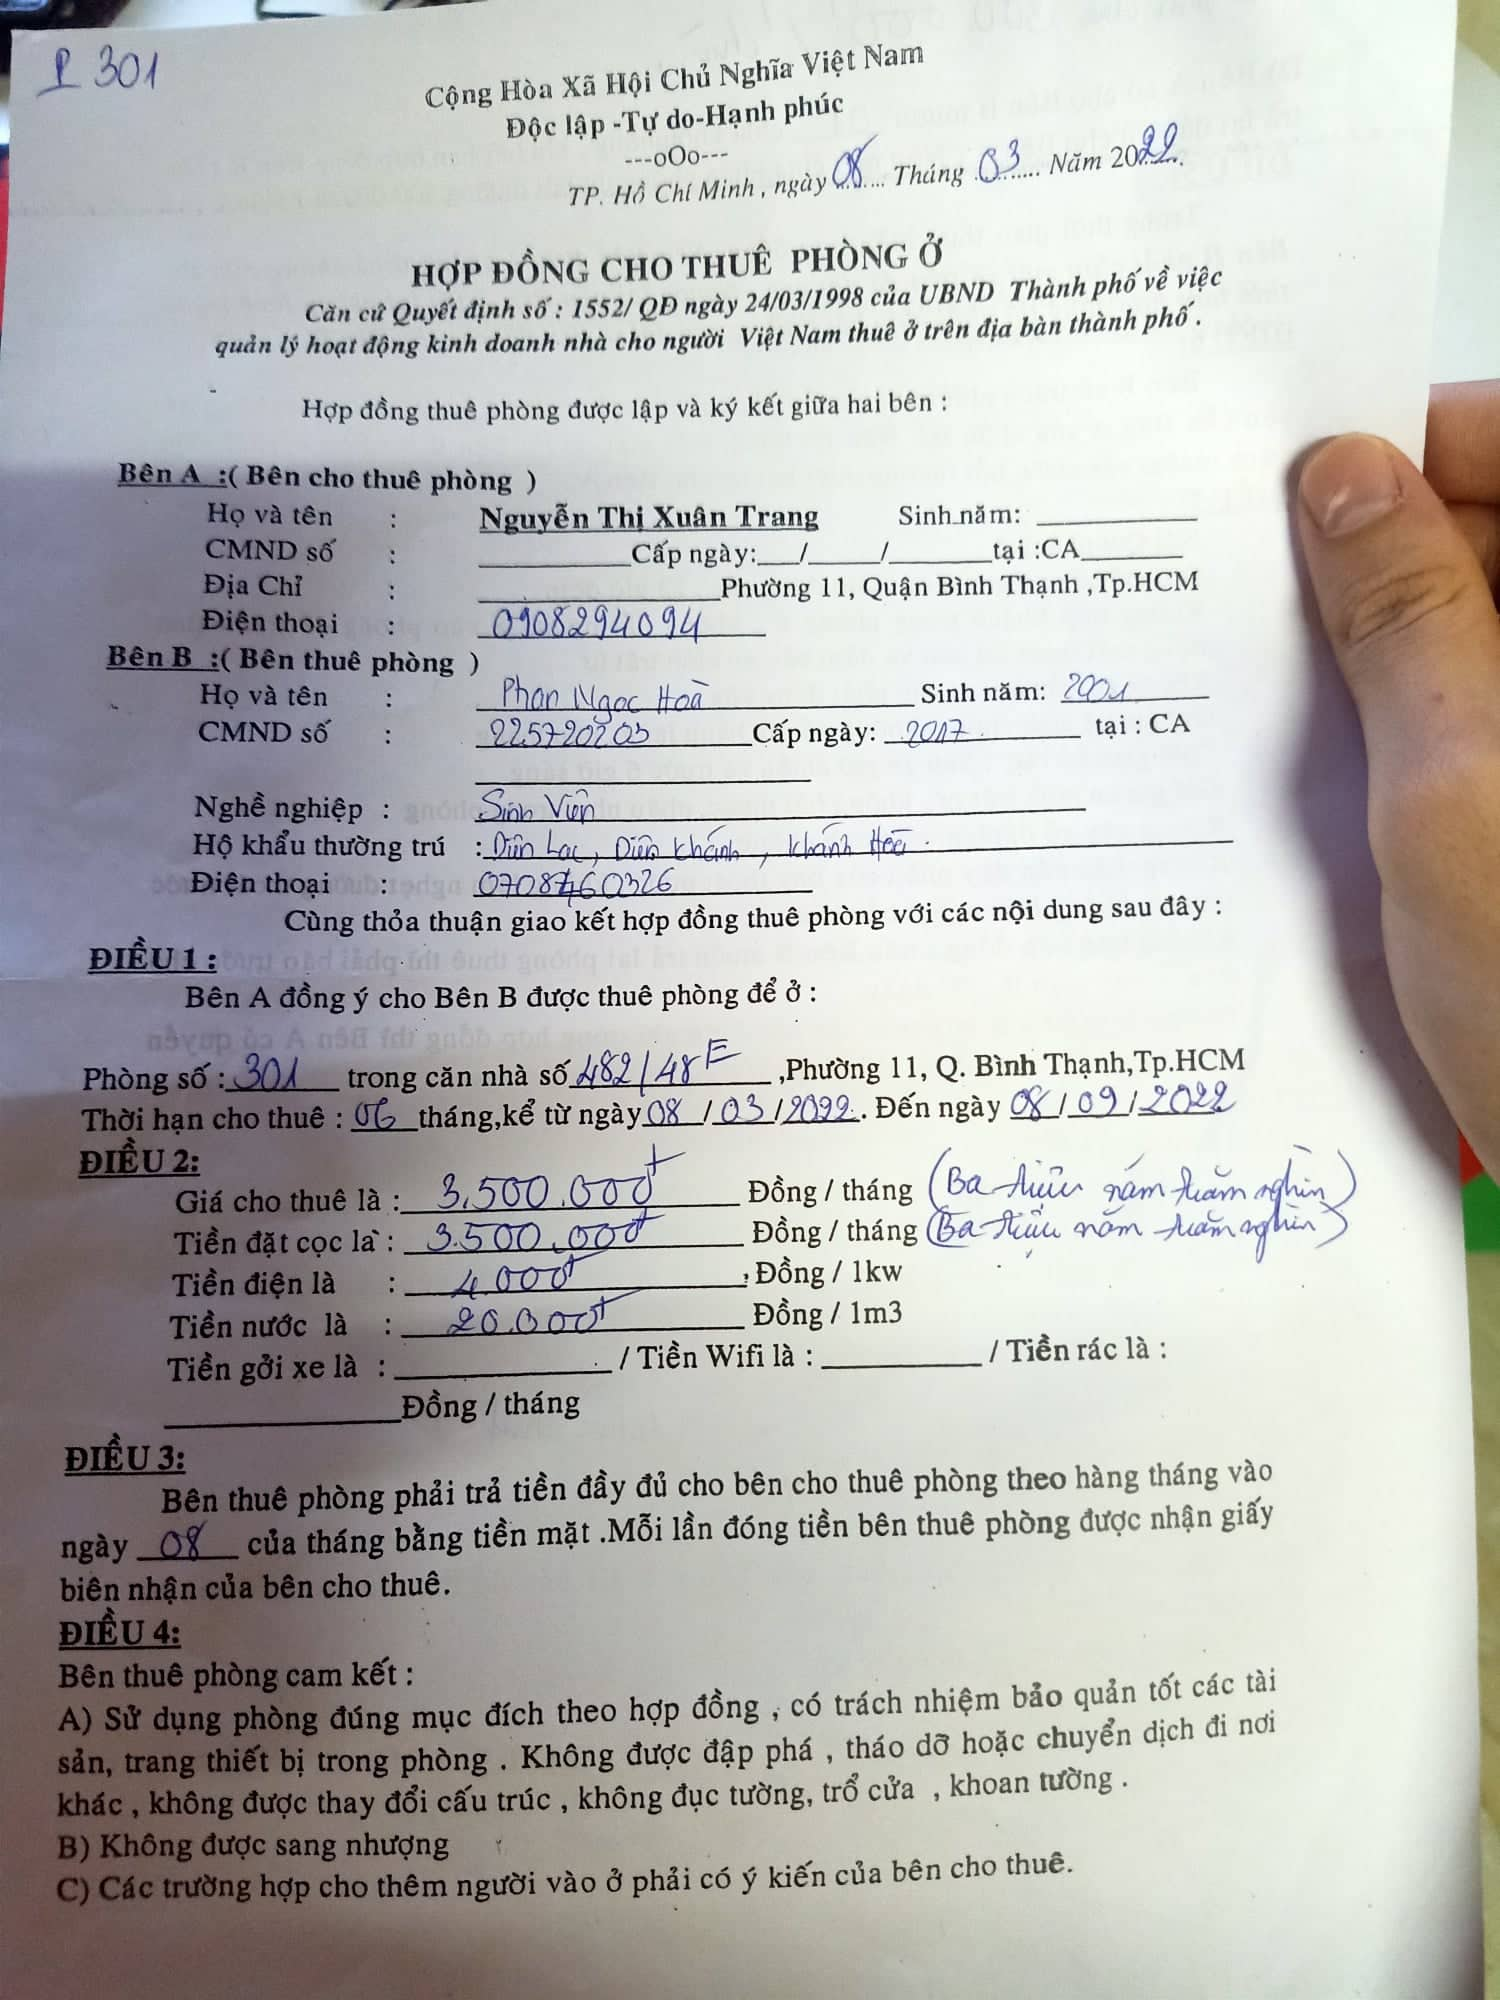 P 301
Cộng Hòa Xã Hội Chủ Nghĩa Việt Nam
Độc lập -Tự do-Hạnh phúc
---oOo---
TP. Hồ Chí Minh , ngày 08 Tháng 03 Năm 2022
HỢP ĐỒNG CHO THUÊ PHÒNG Ở
Căn cứ Quyết định số : 1552/ QĐ ngày 24/03/1998 của UBND Thành phố về việc
quản lý hoạt động kinh doanh nhà cho người Việt Nam thuê ở trên địa bàn thành phố .
Hợp đồng thuê phòng được lập và ký kết giữa hai bên :
Bên A :( Bên cho thuê phòng )
Họ và tên : Nguyễn Thị Xuân Trang Sinh năm: ________
CMND số : ________Cấp ngày:___/____/______tại :CA______
Địa Chỉ : ____________Phường 11, Quận Bình Thạnh ,Tp.HCM
Điện thoại : 0908294094
Bên B :( Bên thuê phòng )
Họ và tên : Phan Ngọc Hoà Sinh năm: 2001
CMND số : 225720203 Cấp ngày: 2017. tại : CA
Nghề nghiệp : Sinh Viên
Hộ khẩu thường trú : Diên Lạc, Diên Khánh, Khánh Hoà.
Điện thoại : 0708460326
Cùng thỏa thuận giao kết hợp đồng thuê phòng với các nội dung sau đây :
ĐIỀU 1 :
Bên A đồng ý cho Bên B được thuê phòng để ở :
Phòng số : 301 trong căn nhà số 482/48E ,Phường 11, Q. Bình Thạnh,Tp.HCM
Thời hạn cho thuê : 06 tháng,kể từ ngày 08/03/2022. Đến ngày 08/09/2022
ĐIỀU 2:
Giá cho thuê là : 3.500.000đ Đồng / tháng (Ba triệu năm trăm nghìn)
Tiền đặt cọc là : 3.500.000đ Đồng / tháng (Ba triệu năm trăm nghìn)
Tiền điện là : 4.000đ Đồng / 1kw
Tiền nước là : 20.000đ Đồng / 1m3
Tiền gởi xe là : ____________ / Tiền Wifi là : _________ / Tiền rác là :
____________Đồng / tháng
ĐIỀU 3:
Bên thuê phòng phải trả tiền đầy đủ cho bên cho thuê phòng theo hàng tháng vào
ngày 08 của tháng bằng tiền mặt .Mỗi lần đóng tiền bên thuê phòng được nhận giấy
biên nhận của bên cho thuê.
ĐIỀU 4:
Bên thuê phòng cam kết :
A) Sử dụng phòng đúng mục đích theo hợp đồng , có trách nhiệm bảo quản tốt các tài
sản, trang thiết bị trong phòng . Không được đập phá , tháo dỡ hoặc chuyển dịch đi nơi
khác , không được thay đổi cấu trúc , không đục tường, trổ cửa , khoan tường .
B) Không được sang nhượng
C) Các trường hợp cho thêm người vào ở phải có ý kiến của bên cho thuê.